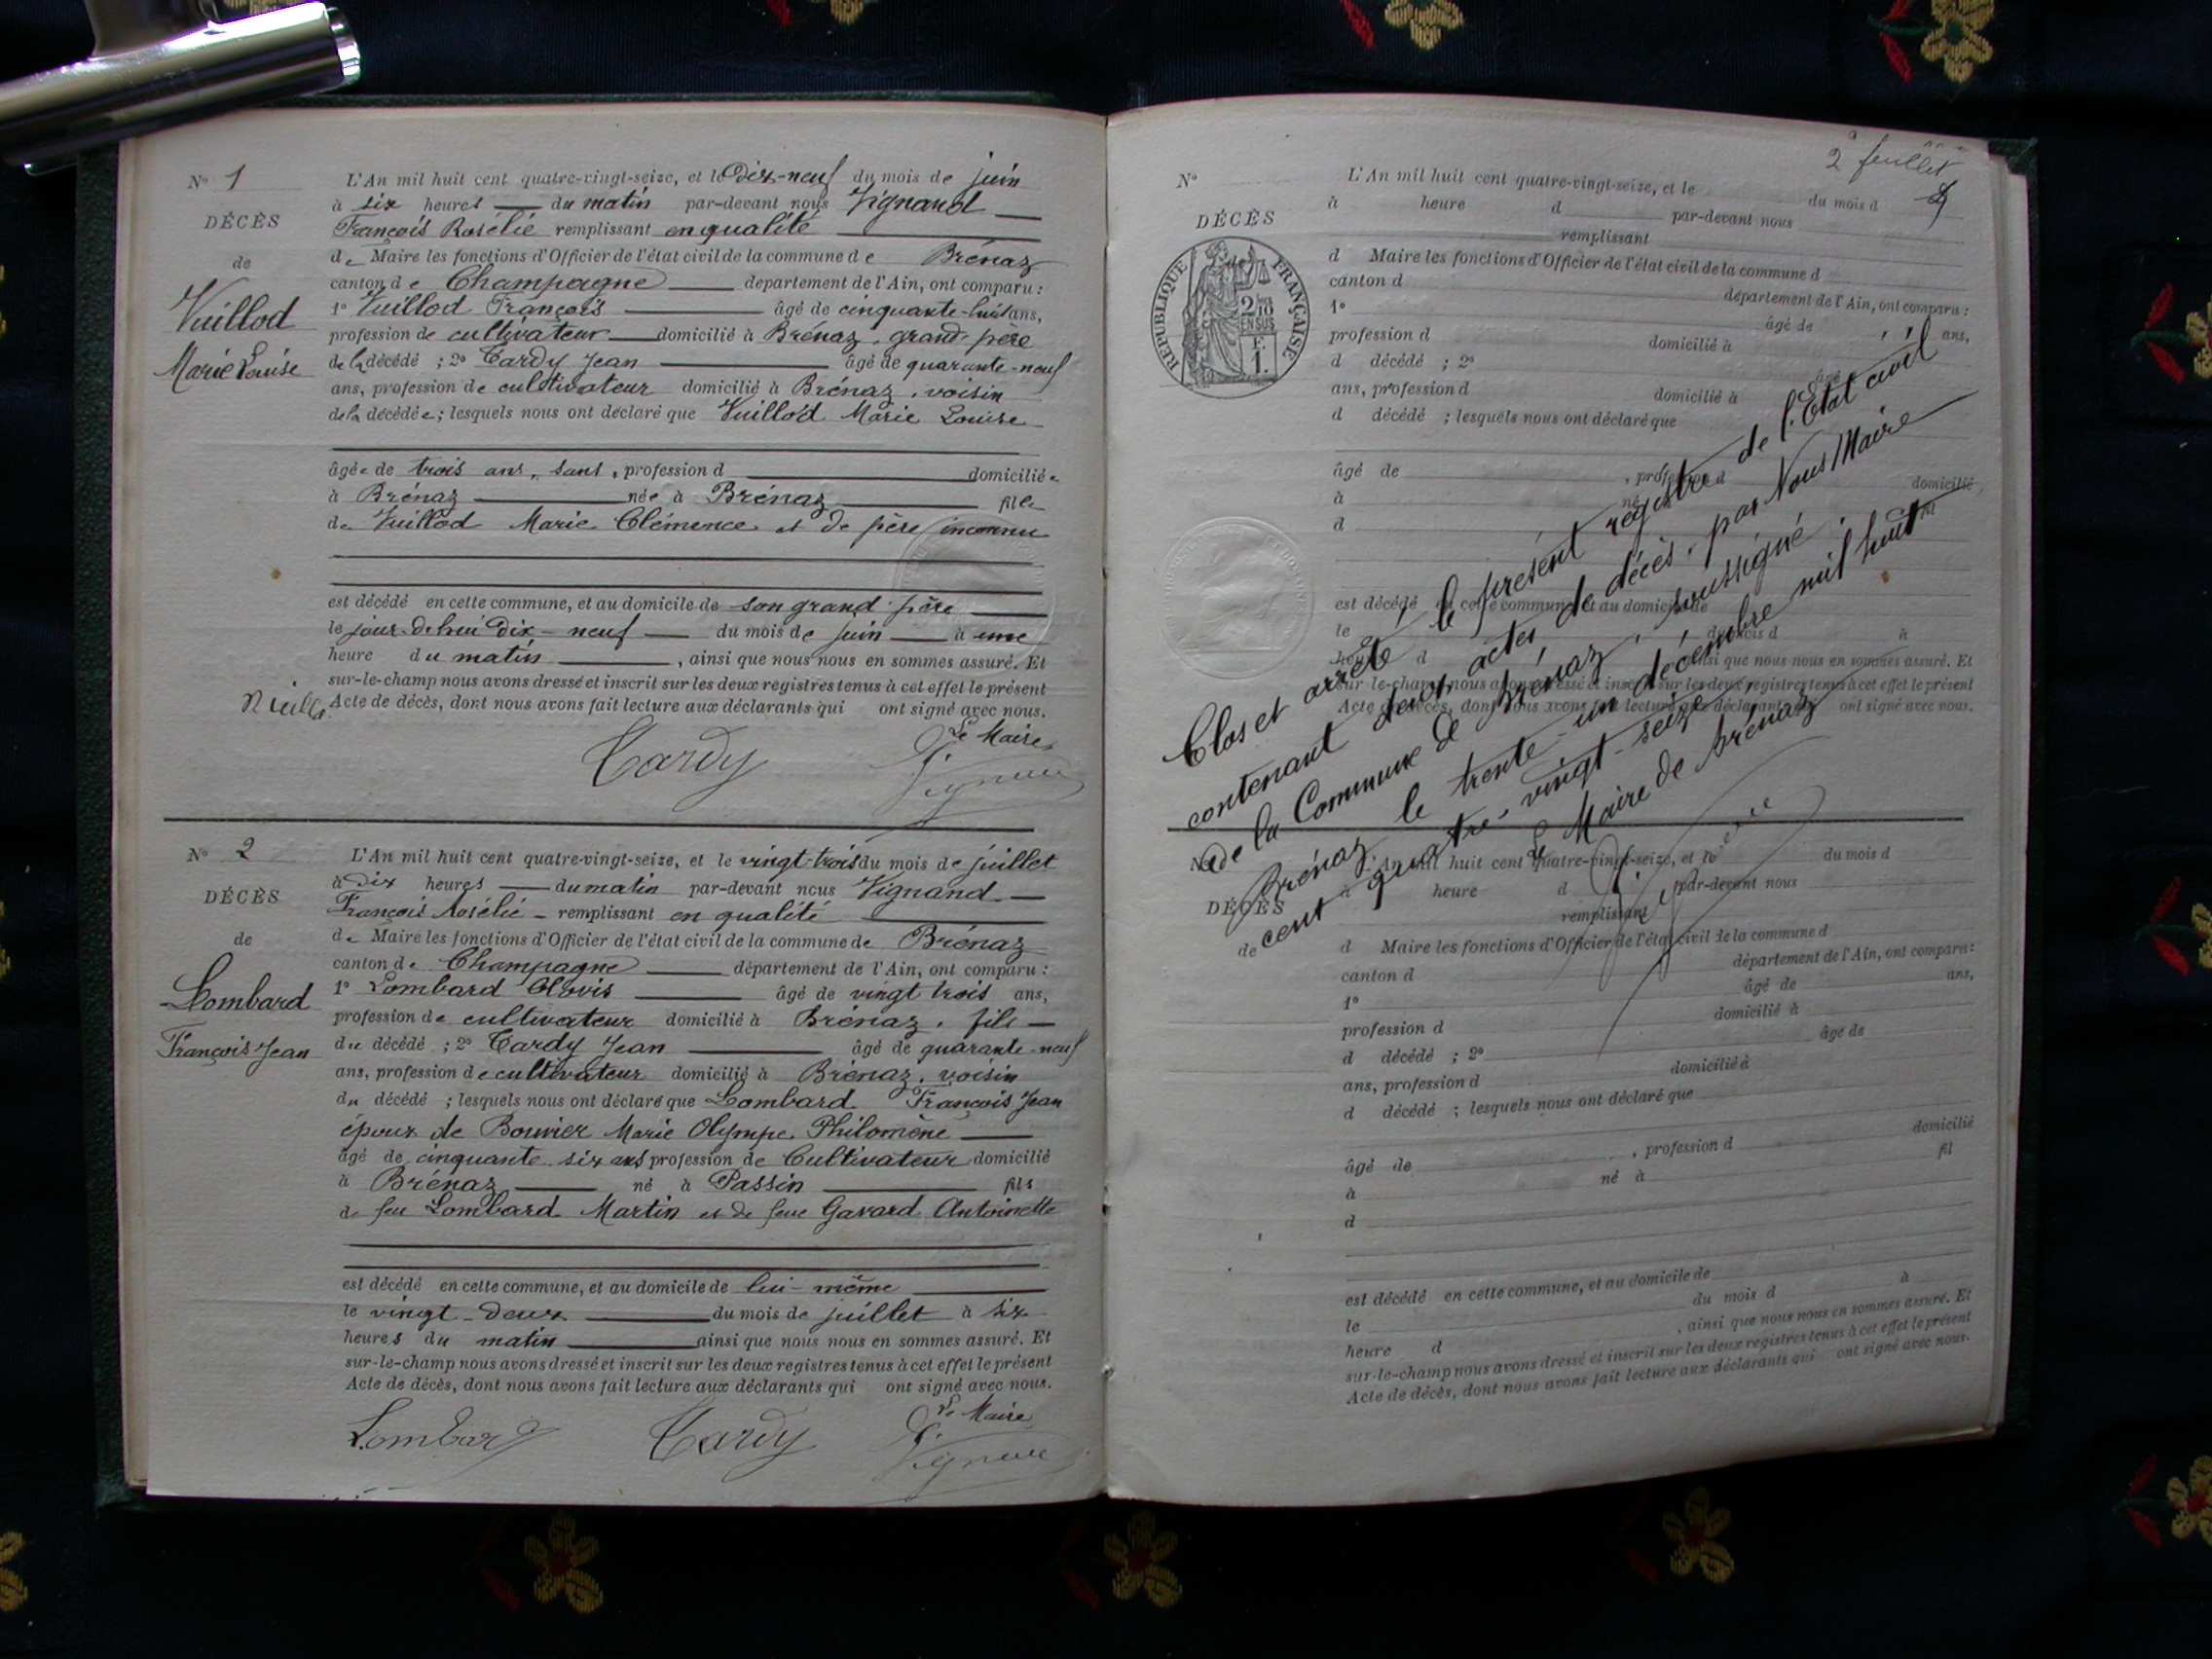 N° 1
DÉCÈS
de
Vuillod
Marie Louise
L'An mil huit cent quatre-vingt-seize, et le Dix-neuf du mois de juin
à six heures du matin par-devant nous Vignand
François Rosélié remplissant en qualité
de Maire les fonctions d'Officier de l'état civil de la commune de Brénaz
canton de Champagne département de l'Ain, ont comparu :
1° Vuillod François âgé de cinquante-huit ans,
profession de cultivateur domicilié à Brénaz, grand-père
de la décédé ; 2° Tardy Jean âgé de quarante-neuf
ans, profession de cultivateur domicilié à Brénaz, voisin
de la décédée ; lesquels nous ont déclaré que Vuillod Marie Louise
âgée de trois ans, sans, profession d domiciliée
à Brénaz née à Brénaz fille
de Vuillod Marie Clémence et de père inconnu
est décédé en cette commune, et au domicile de son grand-père
le jour-d'hui Dix-neuf du mois de juin à une
heure du matin , ainsi que nous nous en sommes assuré. Et
sur-le-champ nous avons dressé et inscrit sur les deux registres tenus à cet effet le présent
Acte de décès, dont nous avons fait lecture aux déclarants qui ont signé avec nous.
Tardy
Le Maire
N° 2
DÉCÈS
de
Lombard
François Jean
L'An mil huit cent quatre-vingt-seize, et le vingt-trois du mois de juillet
à Dix heures du matin par-devant nous Vignand
François Rosélié remplissant en qualité
de Maire les fonctions d'Officier de l'état civil de la commune de Brénaz
canton de Champagne département de l'Ain, ont comparu :
1° Lombard Clovis âgé de vingt trois ans,
profession de cultivateur domicilié à Brénaz, fils
du décédé ; 2° Tardy Jean âgé de quarante-neuf
ans, profession de cultivateur domicilié à Brénaz, voisin
du décédé ; lesquels nous ont déclaré que Lombard François Jean
époux de Bouvier Marie Olympe Philomène
âgé de cinquante six ans profession de Cultivateur domicilié
à Brénaz né à Passin fils
de feu Lombard Martin et de feue Gavard Antoinette
est décédé en cette commune, et au domicile de lui-même
le vingt-deux du mois de juillet à six
heures du matin ainsi que nous nous en sommes assuré. Et
sur-le-champ nous avons dressé et inscrit sur les deux registres tenus à cet effet le présent
Acte de décès, dont nous avons fait lecture aux déclarants qui ont signé avec nous.
Lombard Tardy
Le Maire
2e feuillet
N°
DÉCÈS
RÉPUBLIQUE FRANÇAISE
2/10
EN SUS
F.
1.
L'An mil huit cent quatre-vingt-seize, et le du mois d
à heure d par-devant nous
remplissant
d Maire les fonctions d'Officier de l'état civil de la commune d
canton d département de l'Ain, ont comparu :
1° âgé de ans,
profession d domicilié à
d décédé ; 2° âgé de
ans, profession d domicilié à
d décédé ; lesquels nous ont déclaré que
âgé de , profession d domicilié
à né à
d fil
est décédé en cette commune, et au domicile de
le du mois d à
heure d , ainsi que nous nous en sommes assuré. Et
sur-le-champ nous avons dressé et inscrit sur les deux registres tenus à cet effet le présent
Acte de décès, dont nous avons fait lecture aux déclarants qui ont signé avec nous.
Clos et arrêté le présent registre de l'Etat civil
contenant deux actes de décès, par Nous Maire
de la Commune de Brénaz, soussigné.
Brénaz le trente-un décembre mil huit
cent quatre-vingt-seize.
Le Maire de Brénaz
N°
DÉCÈS
de
L'An mil huit cent quatre-vingt-seize, et le du mois d
à heure d par-devant nous
remplissant
d Maire les fonctions d'Officier de l'état civil de la commune d
canton d département de l'Ain, ont comparu :
1° âgé de ans,
profession d domicilié à
d décédé ; 2° âgé de
ans, profession d domicilié à
d décédé ; lesquels nous ont déclaré que
âgé de , profession d domicilié
à né à fil
d
est décédé en cette commune, et au domicile de
le du mois d à
heure d , ainsi que nous nous en sommes assuré. Et
sur-le-champ nous avons dressé et inscrit sur les deux registres tenus à cet effet le présent
Acte de décès, dont nous avons fait lecture aux déclarants qui ont signé avec nous.